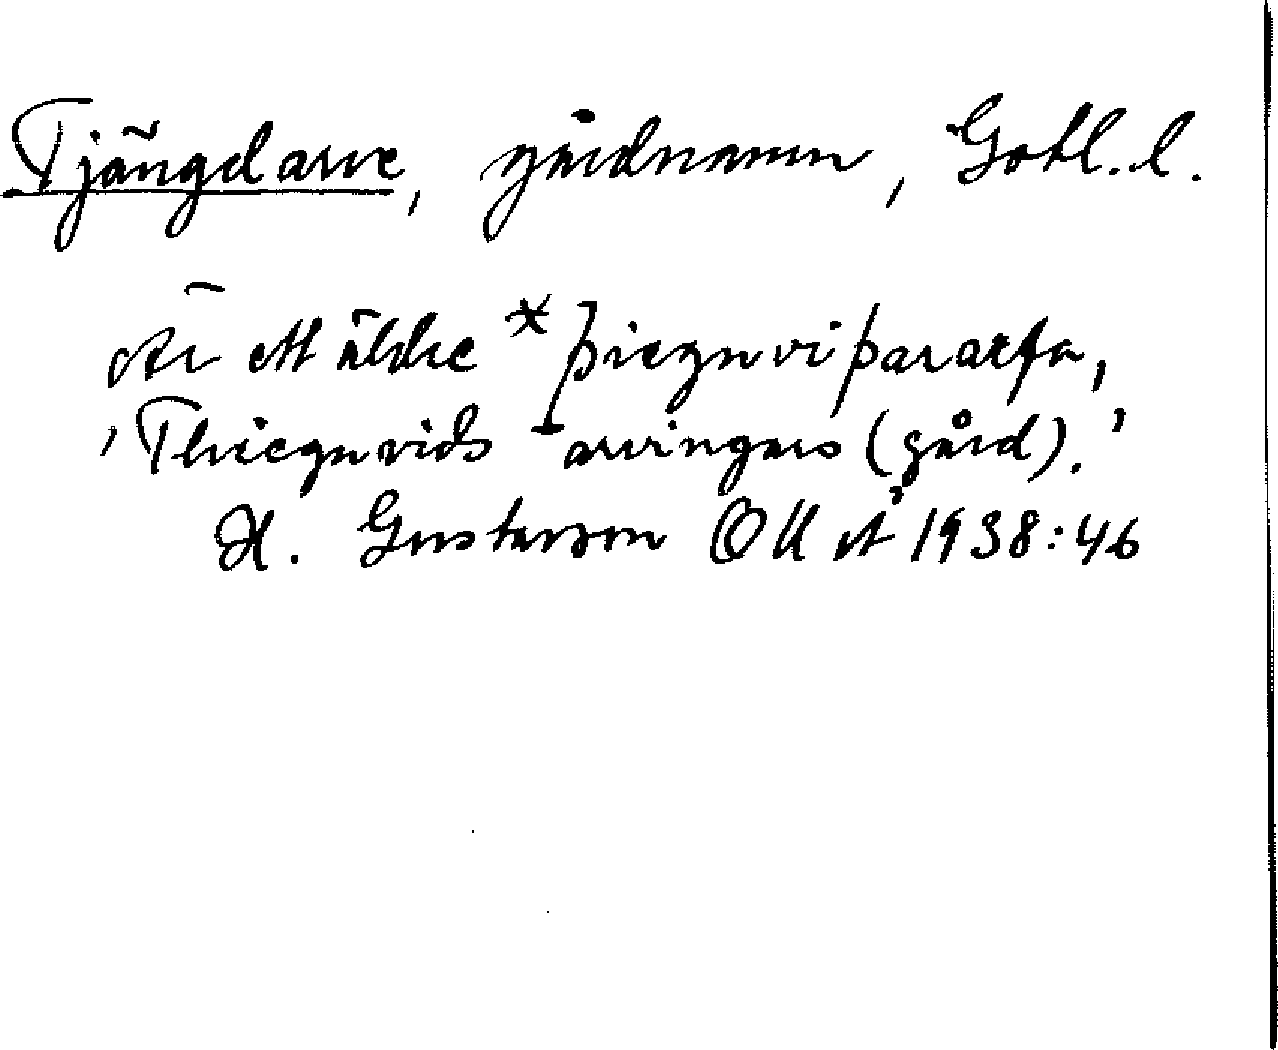 Tjängdarve, gårdnamn, Gotl. l.
Är ett äldre *þiegnviþararfa,
'Thiegnvids arvingars (gård).'
H. Gustavson OUÅ 1938:46